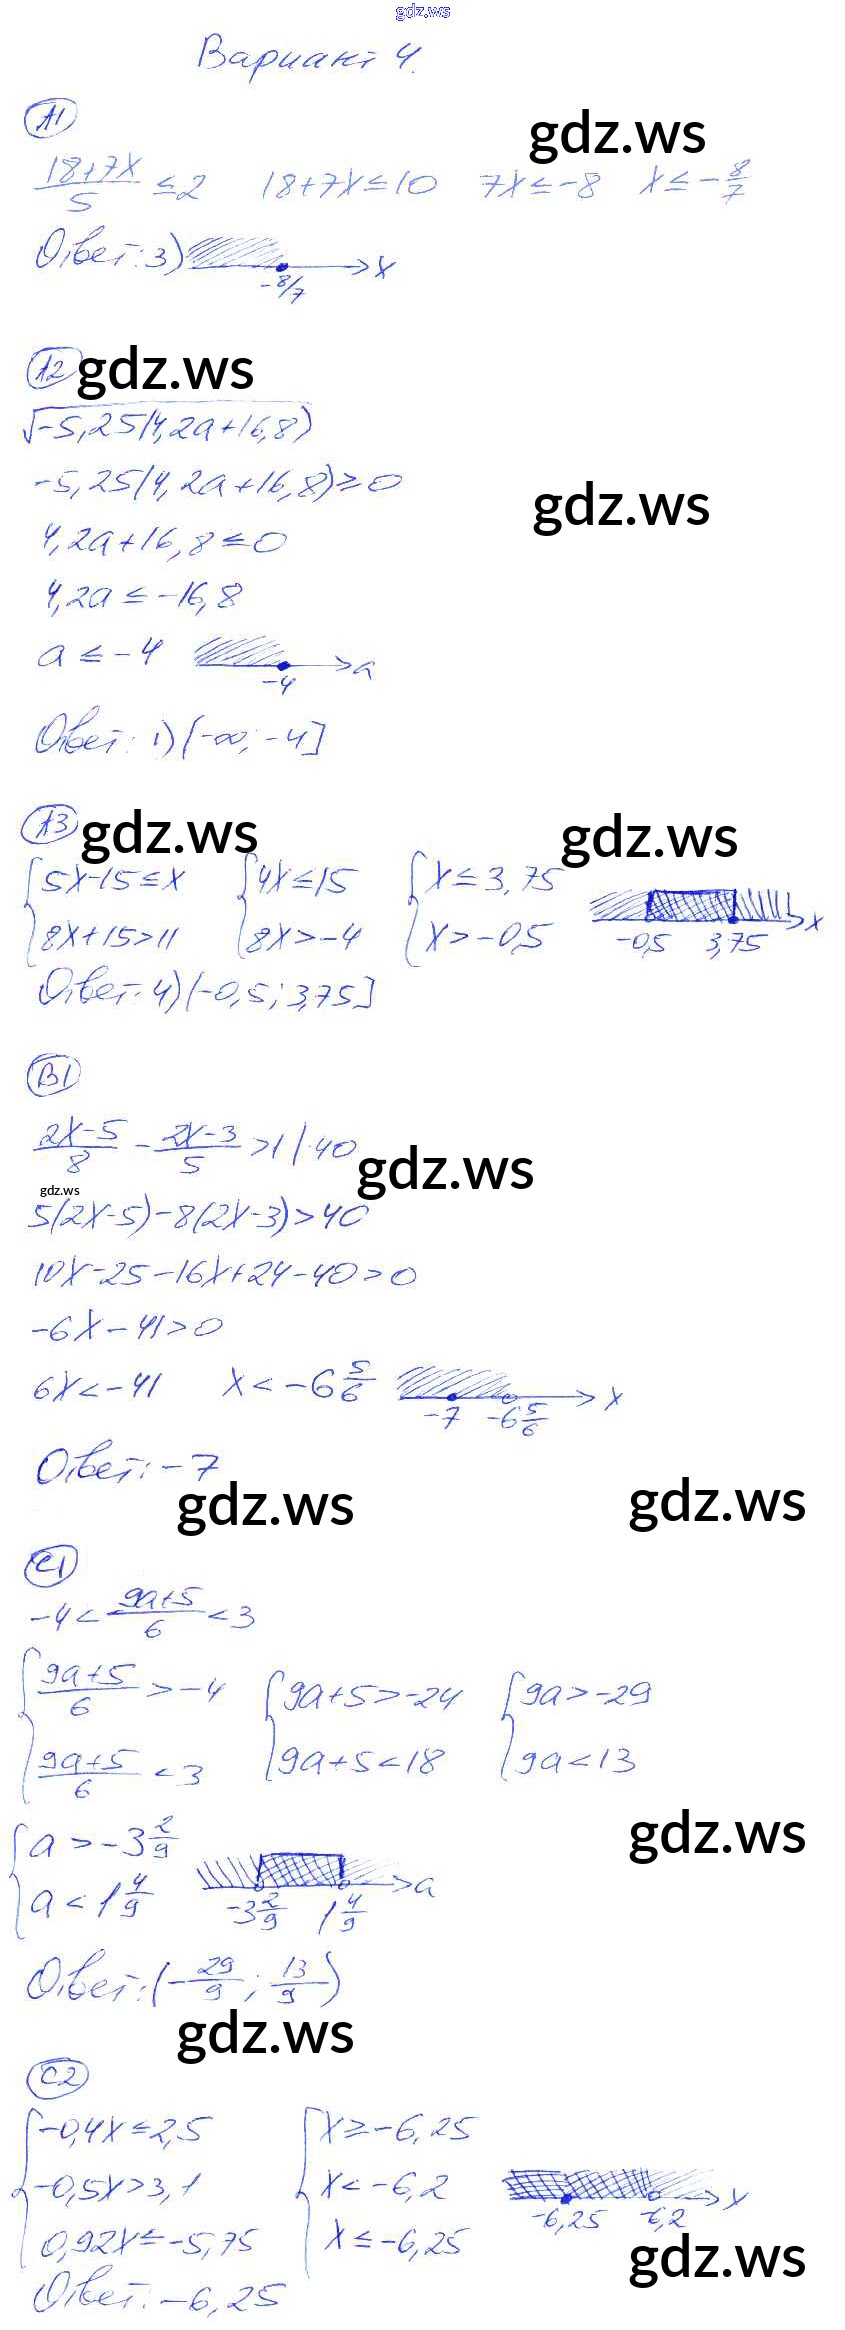 gdz.ws
Вариант 4.
A1
gdz.ws
(18+7x)/5 ≤ 2   18+7x ≤ 10   7x ≤ -8   x ≤ -8/7
Ответ: 3)   -8/7   x
A2
gdz.ws
√(-5,25(4,2a+16,8))
-5,25(4,2a+16,8) ≥ 0
gdz.ws
4,2a+16,8 ≤ 0
4,2a ≤ -16,8
a ≤ -4   -4   a
Ответ: 1) (-∞; -4]
A3
gdz.ws
gdz.ws
{5x-15 ≤ x   {4x ≤ 15   {x ≤ 3,75
{8x+15 > 11   {8x > -4   {x > -0,5   -0,5   3,75   x
Ответ: 4) (-0,5; 3,75]
B1
(2x-5)/8 - (2x-3)/5 > 1 | ·40
gdz.ws
gdz.ws
5(2x-5)-8(2x-3) > 40
10x-25-16x+24-40 > 0
-6x-41 > 0
6x < -41   x < -6 5/6   -7   -6 5/6   x
Ответ: -7
gdz.ws
gdz.ws
C1
-4 < (9a+5)/6 < 3
{(9a+5)/6 > -4   {9a+5 > -24   {9a > -29
{(9a+5)/6 < 3   {9a+5 < 18   {9a < 13
gdz.ws
{a > -3 2/9
{a < 1 4/9   -3 2/9   1 4/9   a
Ответ: (-29/9; 13/9)
gdz.ws
C2
{-0,4x ≤ 2,5   {x ≥ -6,25
{-0,5x > 3,1   {x < -6,2   -6,25   -6,2   x
{0,92x ≤ -5,75   {x ≤ -6,25
gdz.ws
Ответ: -6,25